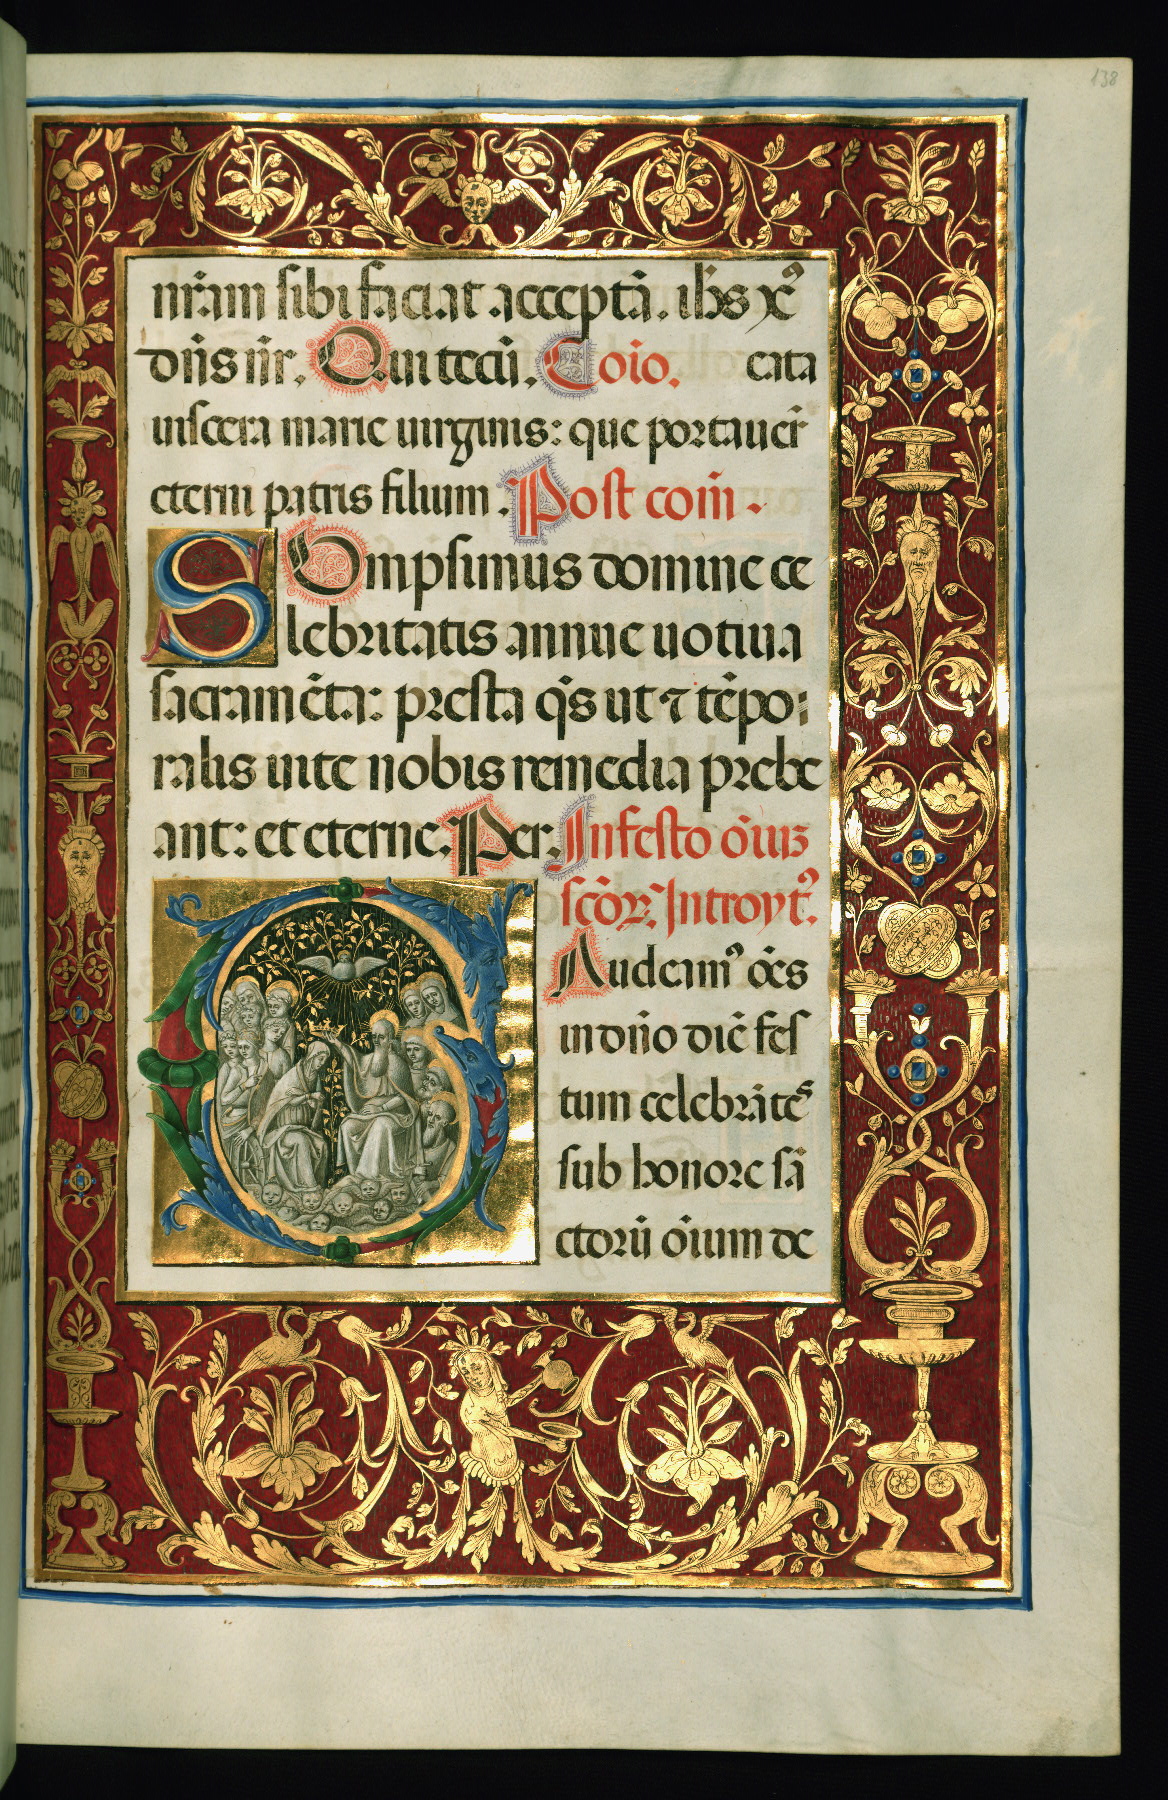 138
nr̃am sibi faciat acceptã. ihs̃ xp̃s
dñs nr̃. Qui tecũ. Coĩo. eata
uiscera marie uirginis: que portauer̃
eterni patris filium. Post coĩm.
Sompsimus domine ce
lebritatis annue uotiua
sacramẽta: presta qs̃ ut ⁊ tẽpo
ralis uite nobis remedia prebe
ant: et eterne. Per. In festo oĩuʒ
scõꝝ. Introytꝰ.
Audeamꝰ oẽs
in dño diẽ fes
tum celebrãtes
sub honore sã
ctorũ oĩum de